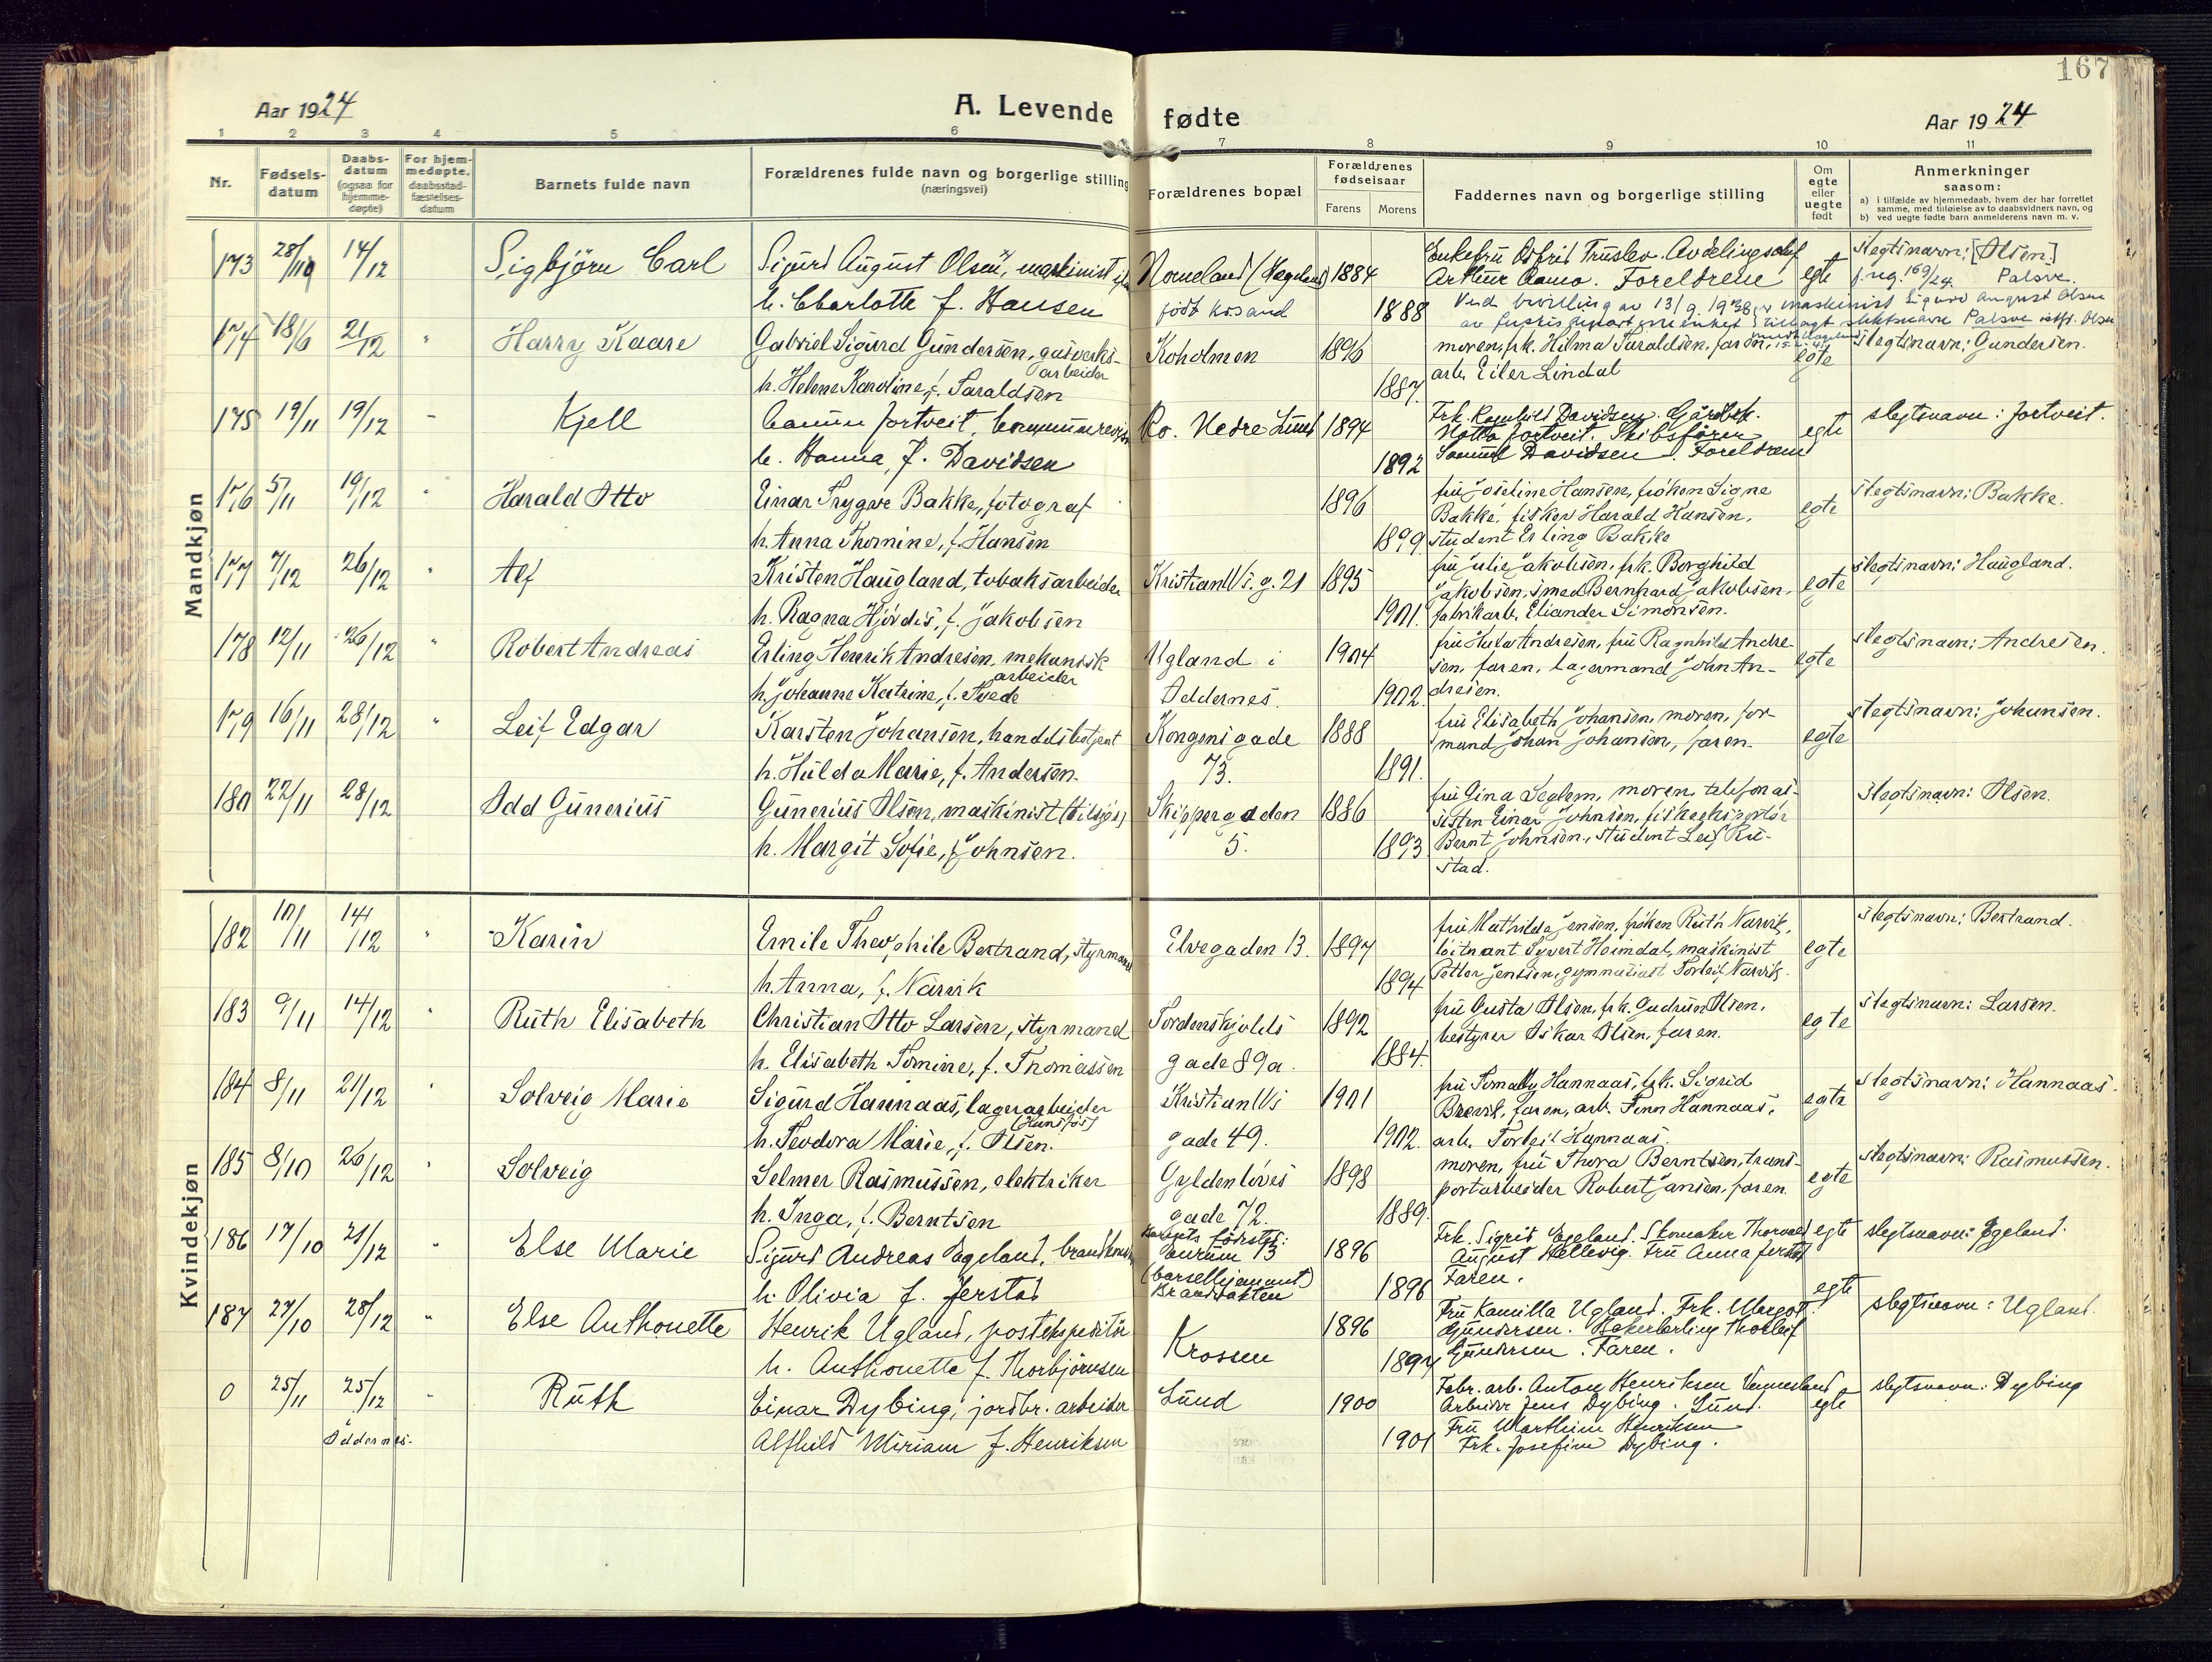 167
Aar 1924
A. Levende fødte
Aar 1924
1 2 3 4 5 6 7 8 9 10 11
Nr.
Fødsels-datum
Daabs-datum (ogsaa for hjemme-døpte)
For hjem-medøpte, daabsstad-fæstelses-datum
Barnets fulde navn
Forældrenes fulde navn og borgerlige stilling (næringsvei)
Forældrenes bopæl
Forældrenes fødselsaar
Farens Morens
Faddernes navn og borgerlige stilling
Om egte eller uegte født
Anmerkninger saasom:
a) i tilfælde av hjemmedaab, hvem der har forrettet samme, med tilføielse av to daabsvidners navn, og
b) ved uegte fødte barn anmelderens navn m. v.
Mandkjøn
173 28/10 14/12 Sigbjörn Carl Sigurd August Olsen, maskinist Homeland (Hægeland) 1884 Enkefru Astrid Truslev. Avdelingschef egte Slegtsnavn: [Olsen]
Arthur Aamo. Foreldrene f. reg. 169/24. Palsve.
h. Charlotte f. Hansen født krsand 1888 Ved bevilling av 13/9. 1938 maskinist Sigurd August Olsen
174 18/6 21/12 " Harry Kaare Gabriel Sigurd Gundersen, gasverks-arbeider Koholmen 1896 moren, frk. Hilma Taraldsen, faren, egte Slegtsnavn: Gundersen.
h. Helene Karoline, f. Taraldsen 1887. arb. Eiler Lindal
175 19/11 19/12 " Kjell Gunnu Jortveit, kommunerevisor Ko. Nedre Lund 1894 Frk. Ragnhild Davidsen. Gårdbr. egte slegtsnavn: Jortveit.
h. Hanna, f. Davidsen 1892 Notto Jortveit. Skibsfører
Samuel Davidsen. Foreldrene
176 5/11 19/12 " Harald Otto Einar Trygve Bakke, fotograf 1896 fru Joseline Hansen, frøken Signe egte Slegtsnavn: Bakke.
Bakke, fisker Harald Hansen,
h. Anna Thomine, f. Hansen 1899. student Erling Bakke
177 7/12 26/12 " Alf Kristen Haugland, tobaksarbeider Kristian IVs. g. 21 1895 fru Julie Jakobsen, frk. Borghild egte Slegtsnavn: Haugland.
Jakobsen, smed Bernhard Jakobsen,
h. Ragna Hjördis, f. Jakobsen 1901. fabrikarb. Eliander Simonsen.
178 12/11 26/12 " Robert Andreas Erling Henrik Andresen, mekanisk arbeider Ugland i 1904 fru Hulda Andresen, fru Ragnhild Andre- egte Slegtsnavn: Andresen.
sen, faren, lagermand John An-
h. Johanne Katrine, f. Tvede Oddernes. 1902. dresen.
179 16/11 28/12 " Leif Edgar Karsten Johansen, handelsbetjent Kongensgade 1888 fru Elisabeth Johansen, moren, for- egte Slegtsnavn: Johansen.
mand Johan Johansen, faren.
h. Hulda Marie, f. Andersen. 73. 1891.
180 22/11 28/12 Odd Gunerius Gunerius Olsen, maskinist (tilsjøs) Skippergaden 1886 fru Gina Seglem, moren, telefonas- Slegtsnavn: Olsen.
sisten Einar Johnsen, fiskeeksportør
h. Margit Sofie, f. Johnsen. 5. 1893 Bernt Johnsen, student Leif Ru-
stad.
Kvindekjøn
182 10/11 14/12 " Karin Emile Theophile Bertrand, styrmand Elvegaden 13. 1897 fru Mathilde Jensen, frøken Ruth Narvik, egte Slegtsnavn: Bertrand.
løitnant Syvert Heimdal, maskinist
h. Anna, f. Narvik 1894 Petter Jenssen, gymnasiast Torleif Narvik.
183 9/11 14/12 " Ruth Elisabeth Christian Otto Larsen, styrmand Tordenskjolds 1892 fru Gusta Olsen, frk. Gudrun Olsen, egte Slegtsnavn: Larsen.
bestyrer Oskar Olsen, faren.
h. Elisabeth Tomine, f. Thomassen gade 89a. 1884.
184 8/11 21/12 " Solveig Marie Sigurd Hannaas, lagerarbeider (Hunsfos) Kristian IVs 1901 fru Tomally Hannaas, frk. Sigrid egte Slegtsnavn: Hannaas.
Brevik, faren, arb. Finn Hannaas,
h. Teodora Marie, f. Olsen. gade 49. 1902. arb. Torleif Hannaas.
185 8/10 26/12 " Solveig Selmer Rasmussen, elektriker Gyldenløves 1898 moren, fru Thora Berntsen, trans- egte Slegtsnavn: Rasmussen.
portarbeider Robert Jansen, faren.
h. Inga, f. Berntsen gade 72. 1889.
186 17/10 21/12 " Else Marie Sigurd Andreas Egeland, brandkonst. Barnets fødselst: 1896 Frk. Sigrid Egeland. Skomaker Thorvald egte slegtsnavn: Egeland.
August Hellevig. Fru Anna Jerstad
h. Olivia f. Jerstad (barselhjemmet) Brandvakten 1896 Faren.
187 27/10 28/12 " Else Anthonette Henrik Ugland, postekspeditör Krossen 1896 Fru Kamilla Ugland. Frk. Margot egte slegtsnavn: Ugland.
Gundersen. Bakerlærling Thorleif
h. Anthonette f. Thorbjörnsen 1897 Gundersen. Faren.
0 25/11 25/12 " Ruth Einar Dybing, jordbr. arbeider Lund 1900 Fabr. arb. Anton Henriksen Vennesland egte slegtsnavn: Dybing
Oddernes. Arbeider Jens Dybing. Lund.
Alfhild Miriam f. Henriksen 1901 Fru Marthine Henriksen
Frk. Josefine Dybing.